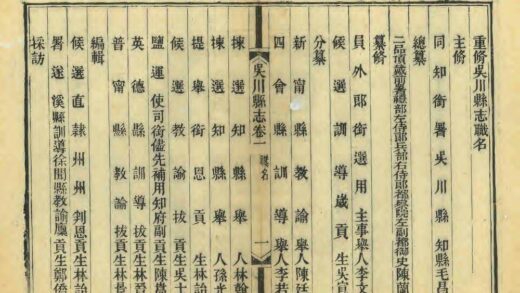 重修吳川縣志職名
主修
同知銜署吳川縣知縣毛昌
總纂
二品頂戴前署禮部左侍郎兵部右侍郎都察院左副都御史陳蘭
纂修
員外郎銜選用主事舉人李文
候選訓導歲貢生吳宣
分纂
新甯縣教諭舉人陳廷
四會縣訓導舉人李若
吳川縣志卷一 職名 一
揀選知縣舉人林翰
揀選知縣舉人孫光
提舉銜恩貢生林詒
候選教諭拔貢生吳士
鹽運使司銜儘先補用知府副貢生陳
英德縣訓導拔貢生林
普甯縣教諭拔貢生林景
編輯
候選直隸州州判恩貢生林詒
署遂溪縣訓導徐聞縣教諭廩貢生鄭僑
採訪